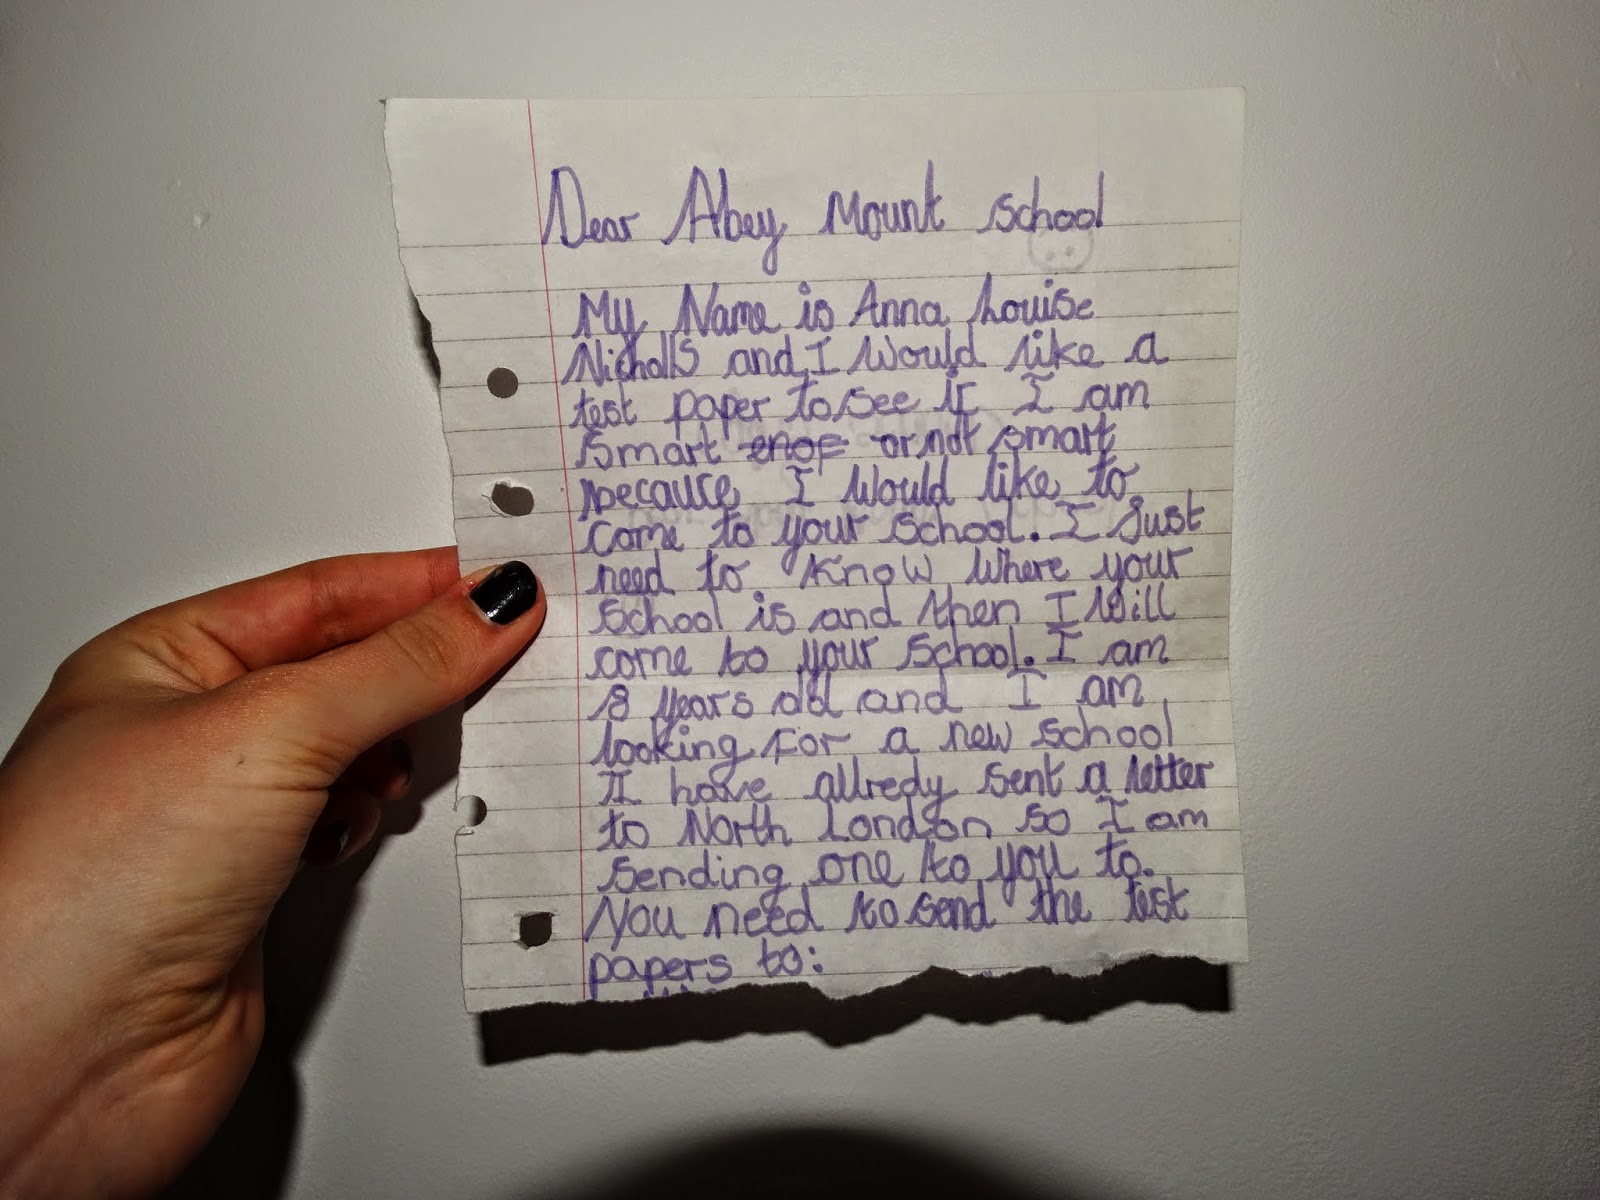 Dear Abey Mount school
My Name is Anna Louise
Nicholls and I would like a
test paper to see if I am
smart enof or not smart
because I would like to
come to your school. I Just
need to know where your
school is and then I will
come to your school. I am
8 years old and I am
looking for a new school
I have allredy sent a letter
to North London so I am
sending one to you to.
You need to send the test
papers to: